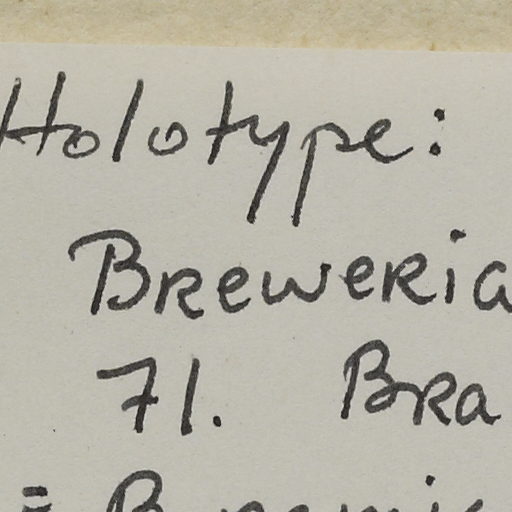 Holotype:
Breweria
71. Bra
=